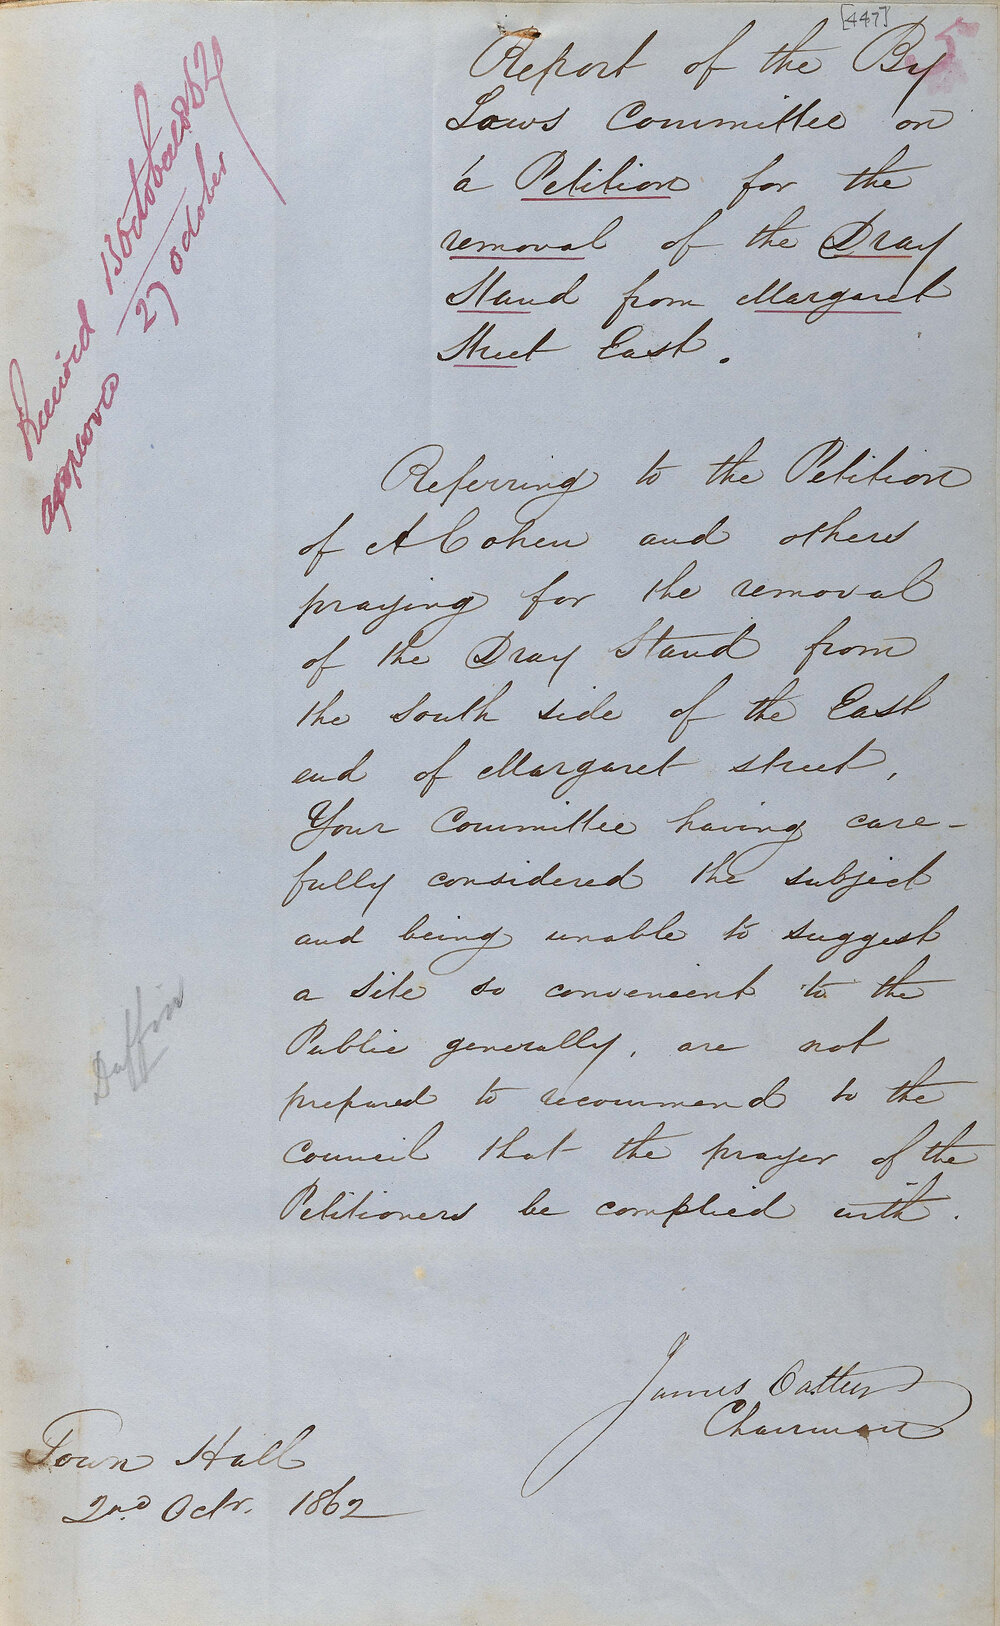 [447]
5
Report of the By
Laws Committee on
a Petition for the
removal of the Dray
Stand from Margaret
Street East.
Received 13 October 1862
approved 27 October
Referring to the Petition
of A Cohen and others
praying for the removal
of the Dray Stand from
the South side of the East
end of Margaret street,
Your Committee having care-
fully considered the subject
and being unable to suggest
a site so convenient to the
Public generally, are not
prepared to recommend to the
Council that the prayer of the
Petitioners be complied with.
Daffin
James Oatley
Chairman
Town Hall
2nd Octr. 1862